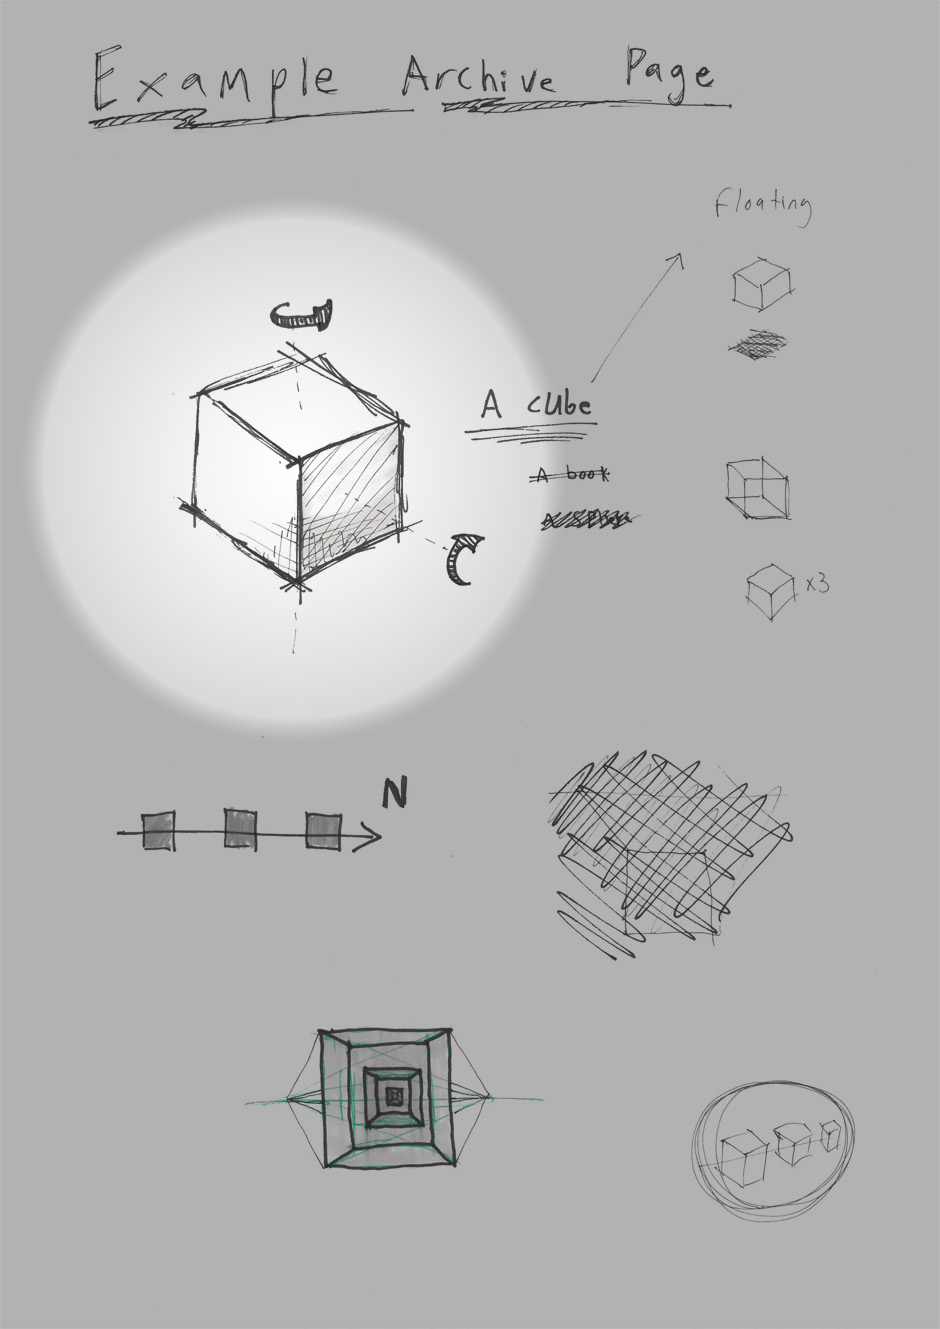 Example Archive Page
Floating
A cube
A book
x3
N